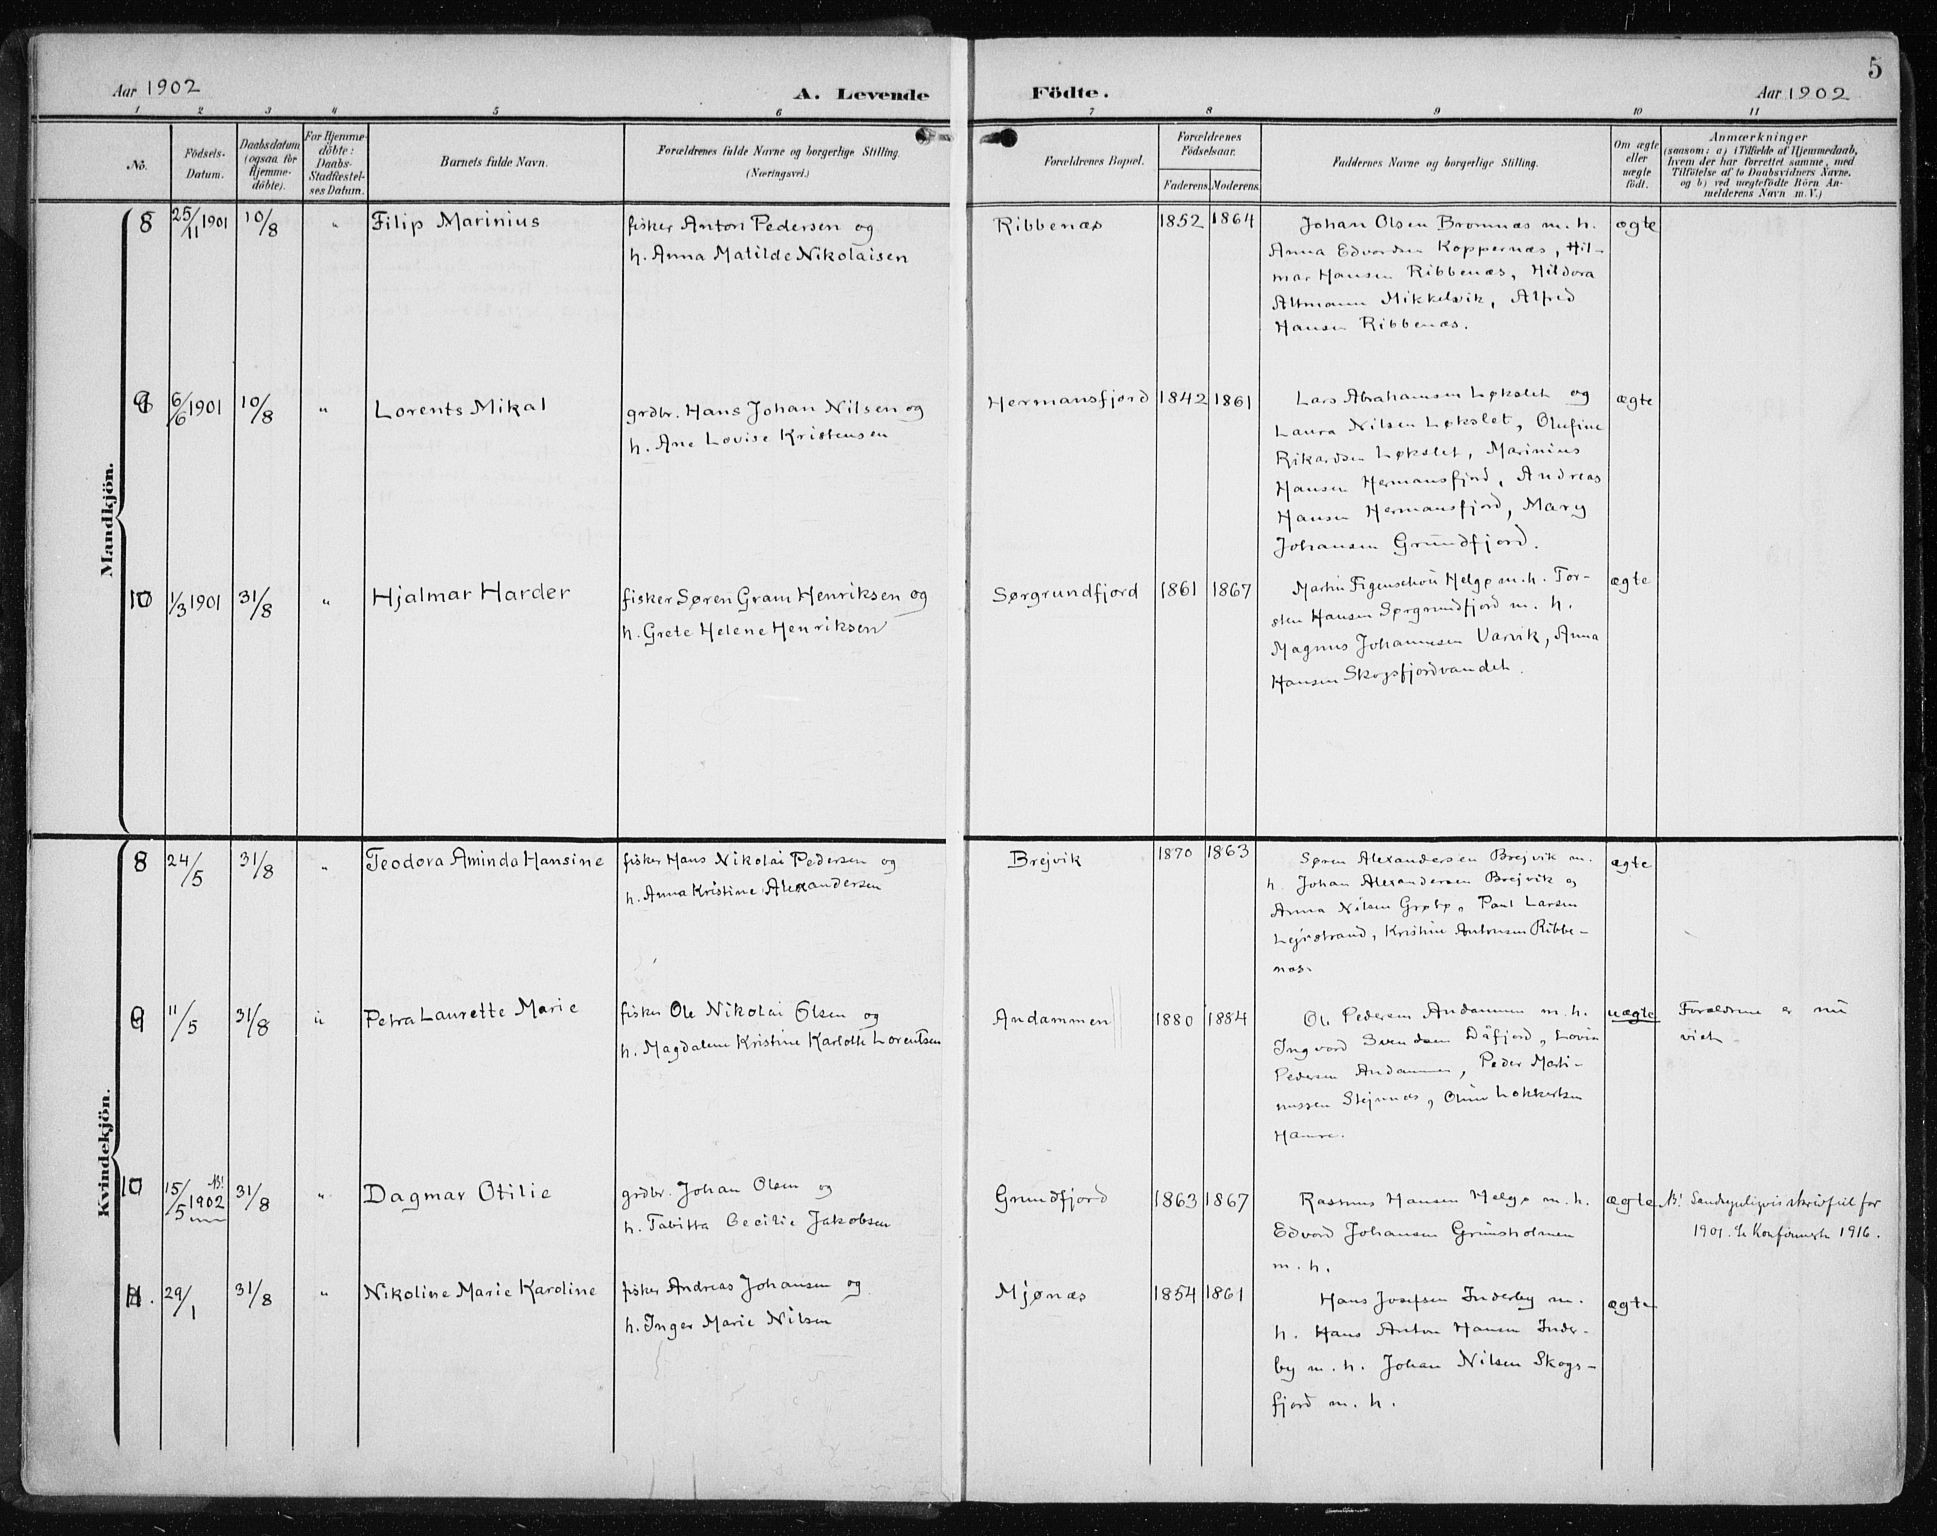 5
Aar 1902
A. Levende
Födte.
Aar 1902
1 2 3 4 5 6 7 8 9 10 11
No.
Födsels-
Datum.
Daabsdatum
(ogsaa for
Hjemme-
döbte).
For Hjemme-
döbte:
Daabs-
Stadfæstel-
ses Datum.
Barnets fulde Navn.
Forældrenes fulde Navne og borgerlige Stilling.
(Næringsvei.)
Forældrenes Bopæl.
Forældrenes
Födselsaar.
Faderens. Moderens.
Faddernes Navne og borgerlige Stilling.
Om ægte
eller
uægte
födt.
Anmærkninger
(saasom: a) i Tilfælde af Hjemmedaab,
hvem der har forrettet samme, med
Tilföielse af to Daabsvidners Navne,
og b) ved uægtefödte Börn An-
melderens Navn m. V.)
Mandkjön.
8 25/11 1901 10/8 " Filip Marinius
fisker Anton Pedersen og
h. Anna Matilde Nikolaisen
Ribbenæs 1852 1864
Johan Olsen Bromnæs m. h.
Anna Edvardsen Koppernæs, Hil-
mar Hansen Ribbenæs, Hildora
Altmann Mikkelvik, Alfred
Hansen Ribbenæs.
ægte
9 6/6 1901 10/8 " Lorents Mikal
grdbr. Hans Johan Nilsen og
h. Ane Lovise Kristensen
Hermansfjord 1842 1861
Lars Abrahamsen Løkslet og
Laura Nilsen Løkslet, Olufine
Rikardsen Løkslet, Marinius
Hansen Hermansfjord, Andreas
Hansen Hermansfjord, Mary
Johansen Grundfjord.
ægte
10 1/3 1901 31/8 " Hjalmar Harder
fisker Søren Gram Henriksen og
h. Grete Helene Henriksen
Sørgrundfjord 1861 1867
Martin Figenschou Helgø m. h. Tor-
sten Hansen Sørgrundfjord m. h.
Magnus Johannesen Varvik, Anna
Hansen Skogsfjordvandet.
ægte
Kvindekjön.
8 24/5 31/8 " Teodora Aminda Hansine
fisker Hans Nikolai Pedersen og
h. Anna Kristine Alexandersen
Brejvik 1870 1863
Søren Alexandersen Brejvik m.
h. Johan Alexandersen Brejvik og
Anna Nilsen Grøtø, Paul Larsen
Lejrstrand, Kristine Antonsen Ribbe-
næs.
ægte
9 11/5 31/8 " Petra Laurette Marie
fisker Ole Nikolai Olsen og
h. Magdalene Kristine Karlotte Lorentsen
Andammen 1880 1884
Ole Pedersen Andammen m. h.
Ingvard Svendsen Dåfjord, Lovise
Pedersen Andammen, Peder Marti-
nussen Stejnnes, Oline Lokkertsen
Hamre.
uægte
Forældrene er nu
viet
10 15/5 1902 NB! 31/8 " Dagmar Otilie
grdbr. Johan Olsen og
h. Tabitta Cecilie Jakobsen
Grundfjord 1863 1867
Rasmus Hansen Helgø m. h.
Edvard Johansen Grimsholmen
m. h.
ægte
NB! Sandsynligvis skrivfeil for
1901. Se Konfirmerte 1916.
11. 29/1 31/8 " Nikoline Marie Karoline
fisker Andreas Johansen og
h. Inger Marie Nilsen
Mjønæs 1854 1861
Hans Josefsen Inderby m.
h. Hans Anton Hansen Inder-
by m. h. Johan Nilsen Skogs-
fjord m. h.
ægte